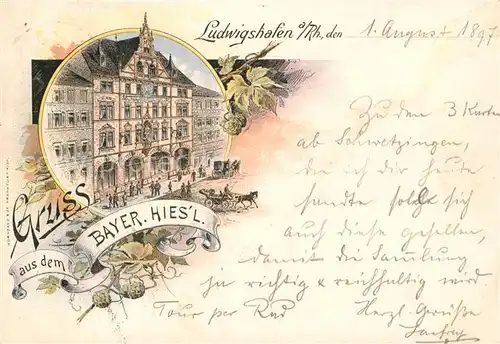 Ludwigshafen a/Rh., den 1. August 1897
Zu den 3 Karten
ab Schwetzingen,
die ich dir heute
sandte solle sich
auch diese gesellen,
damit die Sammlung
ja richtig & reichhaltig wird
Tour per Rad Herzl. Grüße
Gruss
aus dem
BAYER. HIES'L.